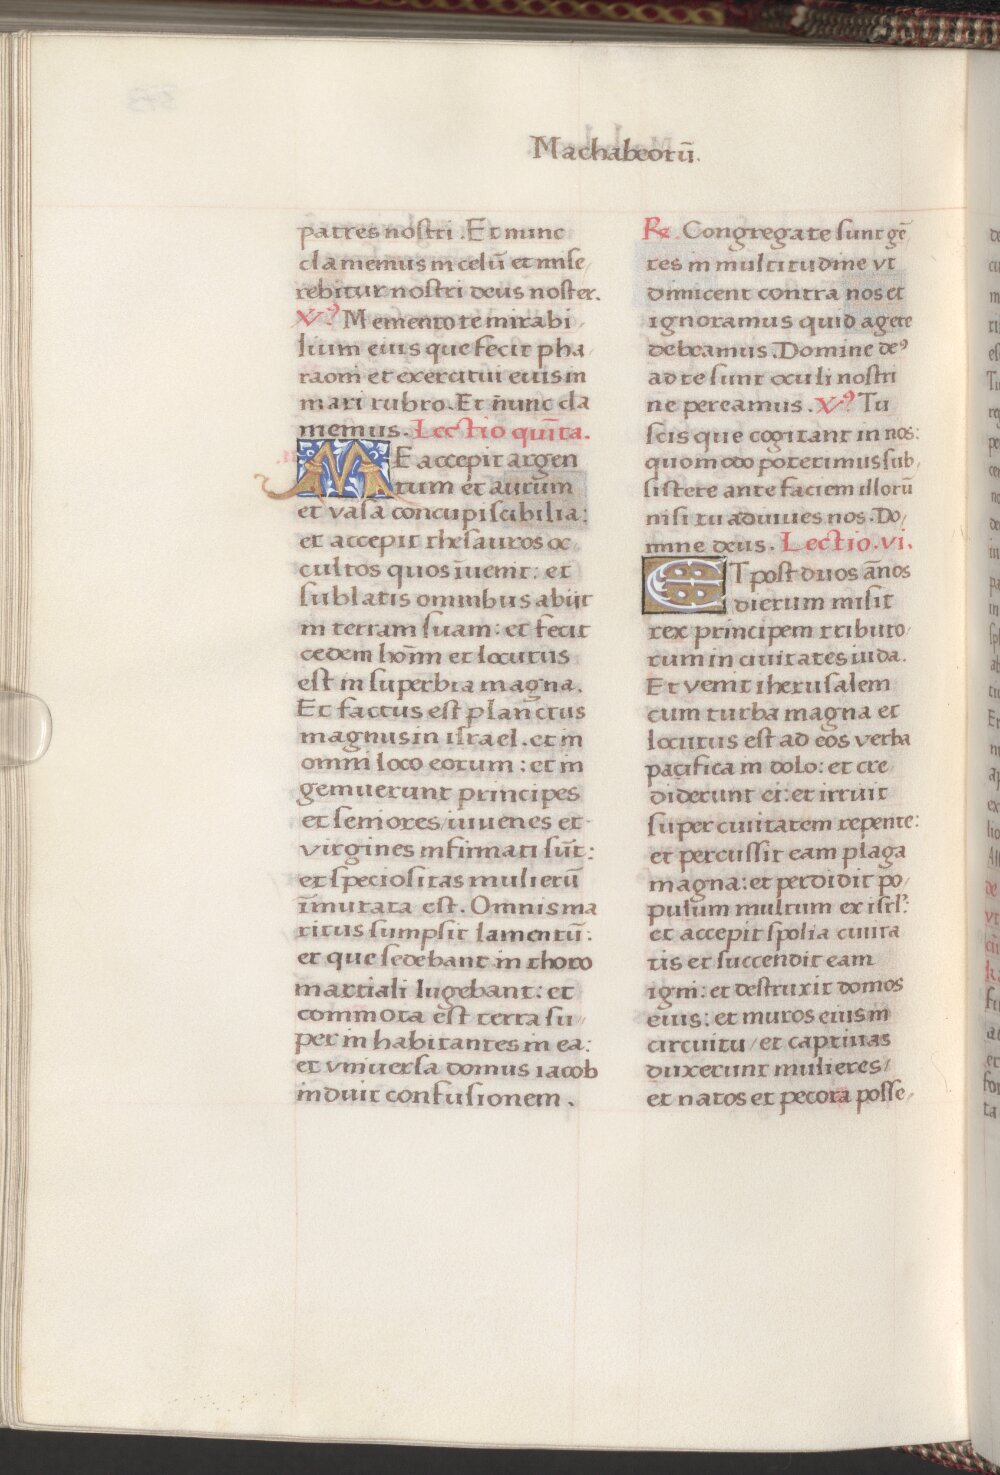 Machabeorū.
patres nostri. Et nunc
clamemus in celū et mise/
rebitur nostri deus noster.
V⁹ Mementote mirabi/
lium eius que fecit pha/
raoni et exercitui eius in
mari rubro. Et nunc cla
memus. Lectio quīta.
ME accepit argen
tum et aurum
et vasa concupiscibilia:
et accepit thesauros oc
cultos quos īuenit: et
sublatis omnibus abijt
in terram suam: et fecit
cedem hoīm et locutus
est in superbia magna.
Et factus est planctus
magnus in israel. et in
omni loco eorum: et in
gemuerunt principes
et seniores/iuuenes et
virgines infirmati sūt:
et speciositas mulierū
īmutata est. Omnis ma
ritus sumpsit lamentū:
et que sedebant in thoro
martiali lugebant: et
commota est terra su/
per inhabitantes in ea:
et vniuersa domus iacob
induit confusionem.
R. Congregate sunt gē
tes in multitudine vt
dimicent contra nos et
ignoramus quid agere
debeamus. Domine de⁹
ad te sunt oculi nostri
ne pereamus. V⁹ Tu
scis que cogitant in nos:
quomodo poterimus sub/
sistere ante faciem illorū
nisi tu adiuues nos. Do/
mine deus. Lectio. vi.
ET post duos ānos
dierum misit
rex principem tributo/
rum in ciuitates iuda.
Et venit iherusalem
cum turba magna et
locutus est ad eos verba
pacifica in dolo: et cre
diderunt ei: et irruit
super ciuitatem repente:
et percussit eam plaga
magna: et perdidit po/
pulum multum ex isrl':
et accepit spolia ciuita
tis et succendit eam
igni: et destruxit domos
eius: et muros eius in
circuitu/et captiuas
duxerunt mulieres/
et natos et pecora posse/